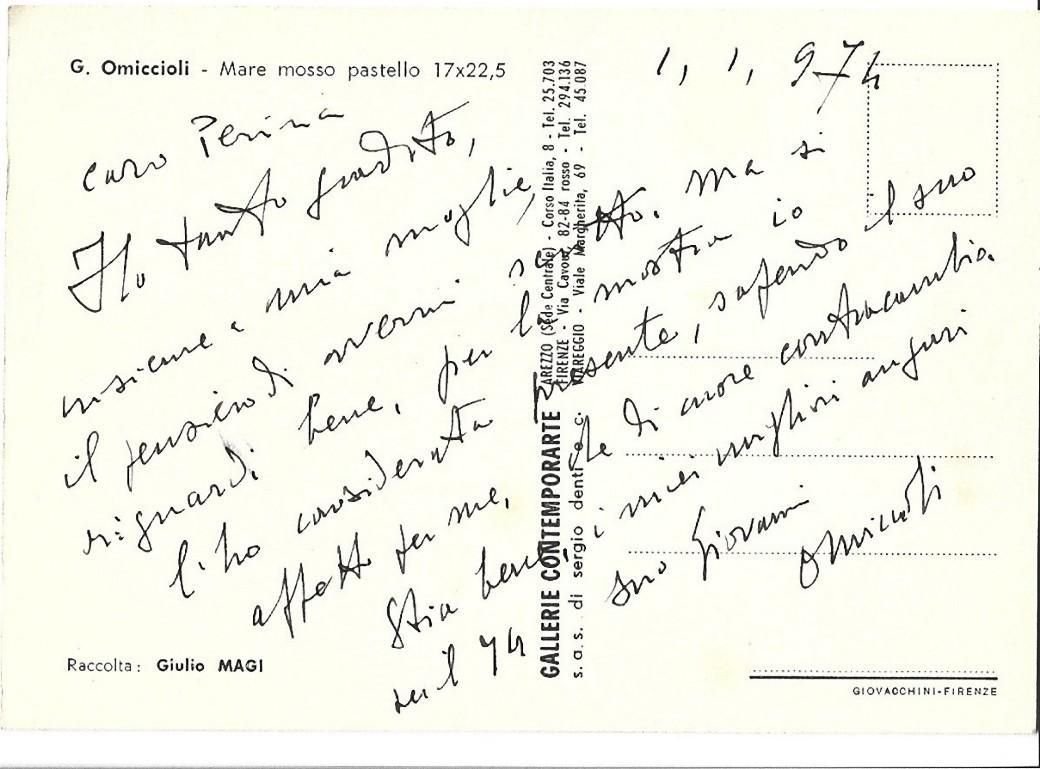 G. Omiccioli - Mare mosso pastello 17x22,5
1, 1, 974
caro Perina
Ho tanto gradito,
insieme a mia moglie,
il pensiero di avermi scritto. Ma si
riguardi bene, per la mostra io
l'ho considerata presente, sapendo il suo
affetto per me, di cuore contracambio.
Stia bene, i miei migliori auguri
per il 74 suo Giovanni
Omiccioli
GALLERIE CONTEMPORARTE
s. a. s. di sergio denti e c.
AREZZO (Sede Centrale) - Corso Italia, 8 - Tel. 25.703
FIRENZE - Via Cavour, 82-84 rosso - Tel. 294.136
VIAREGGIO - Viale Margherita, 69 - Tel. 45.087
Raccolta: Giulio MAGI
GIOVACCHINI-FIRENZE